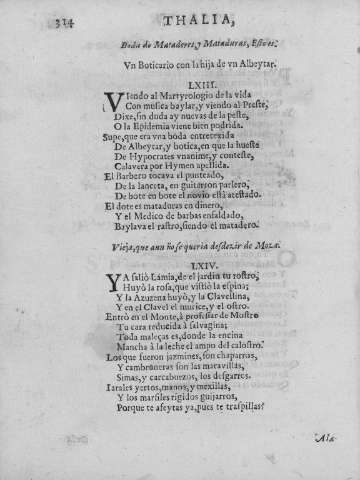 314 THALIA,
Boda de Matadores, y Mataduras, Esto es:
Vn Boticario con la hija de vn Albeytar.
LXIII.
Viendo al Martyrologio de la vida
Con musica baylar, y viendo al Preste,
Dixe, sin duda ay nuevas de la peste,
O la Epidemia viene bien podrida.
Supe, que era vna boda entretexida
De Albeytar, y botica, en que la hueste
De Hypocrates vnanime, y conteste,
Calavera por Hymen apellida.
El Barbero tocava el punteado,
De la lanceta, en guitarron parlero,
De bote en bote el novio està atestado.
El dote es mataduras en dinero,
Y el Medico de barbas ensaldado,
Baylava el rastro, siendo el matadero.
Vieja, que aun no se queria desdezir de Moza.
LXIV.
YA saliò Lamia, de el jardin tu rostro,
Huyò la rosa, que vistiò la espina;
Y la Azuzena huyò, y la Clavellina,
Y en el Clavel el murice, y el ostro.
Entrò en el Monte, à professar de Mostro
Tu cara reducida à salvagina;
Toda maleças es, donde la encina
Mancha à la leche el ampo del calostro.
Los que fueron jazmines, son chaparros,
Y cambroneras son las maravillas,
Simas, y carcabuezos, los desgarros.
Iarales yertos, manos, y mexillas,
Y los marfiles rigidos guijarros,
Porque te afeytas ya, pues te traspillas?
Ala-